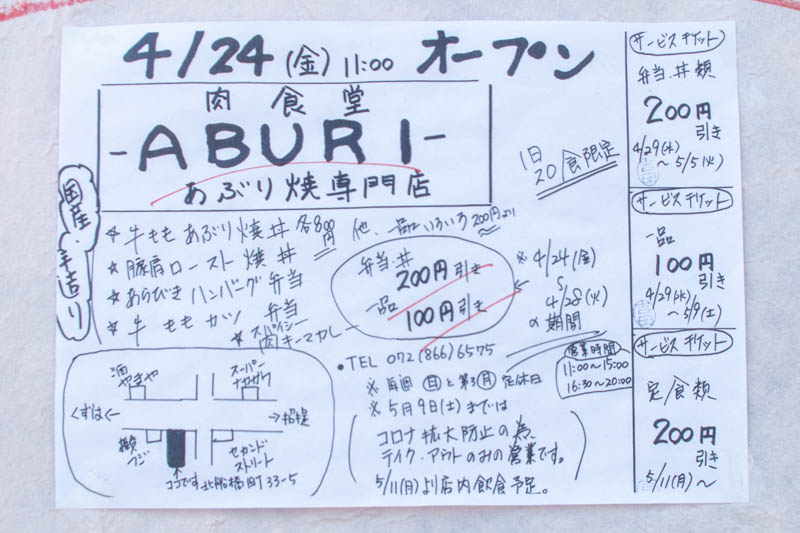 4/24(金) 11:00 オープン
肉食堂
-ABURI-
あぶり焼専門店
1日
20食限定
国産・手造り
☆牛ももあぶり焼丼 各800円
他、一品いろいろ200円より
☆豚肩ロースト焼丼
☆あらびきハンバーグ弁当
☆牛ももカツ弁当
☆スパイシー
肉キーマカレー
弁当.丼
200円引き
一品
100円引き
※4/24(金)
〜
4/28(火)
の期間
•TEL 072(866)6575
※毎週(日)と第3(月)定休日
営業時間
11:00〜15:00
16:30〜20:00
※5月9日(土)までは
コロナ拡大防止の為、
テイク・アウトのみの営業です。
5/11(月)より店内飲食予定。
酒
やまや
スーパー
ナカガワ
くずは←
→招提
フジ
セカンド
ストリート
ココです
北船橋町33-5
サービスチケット
弁当.丼類
200円
引き
4/29(水)
〜5/5(火)
サービスチケット
一品
100円
引き
4/29(水)
〜5/9(土)
サービスチケット
定食類
200円
引き
5/11(月)〜